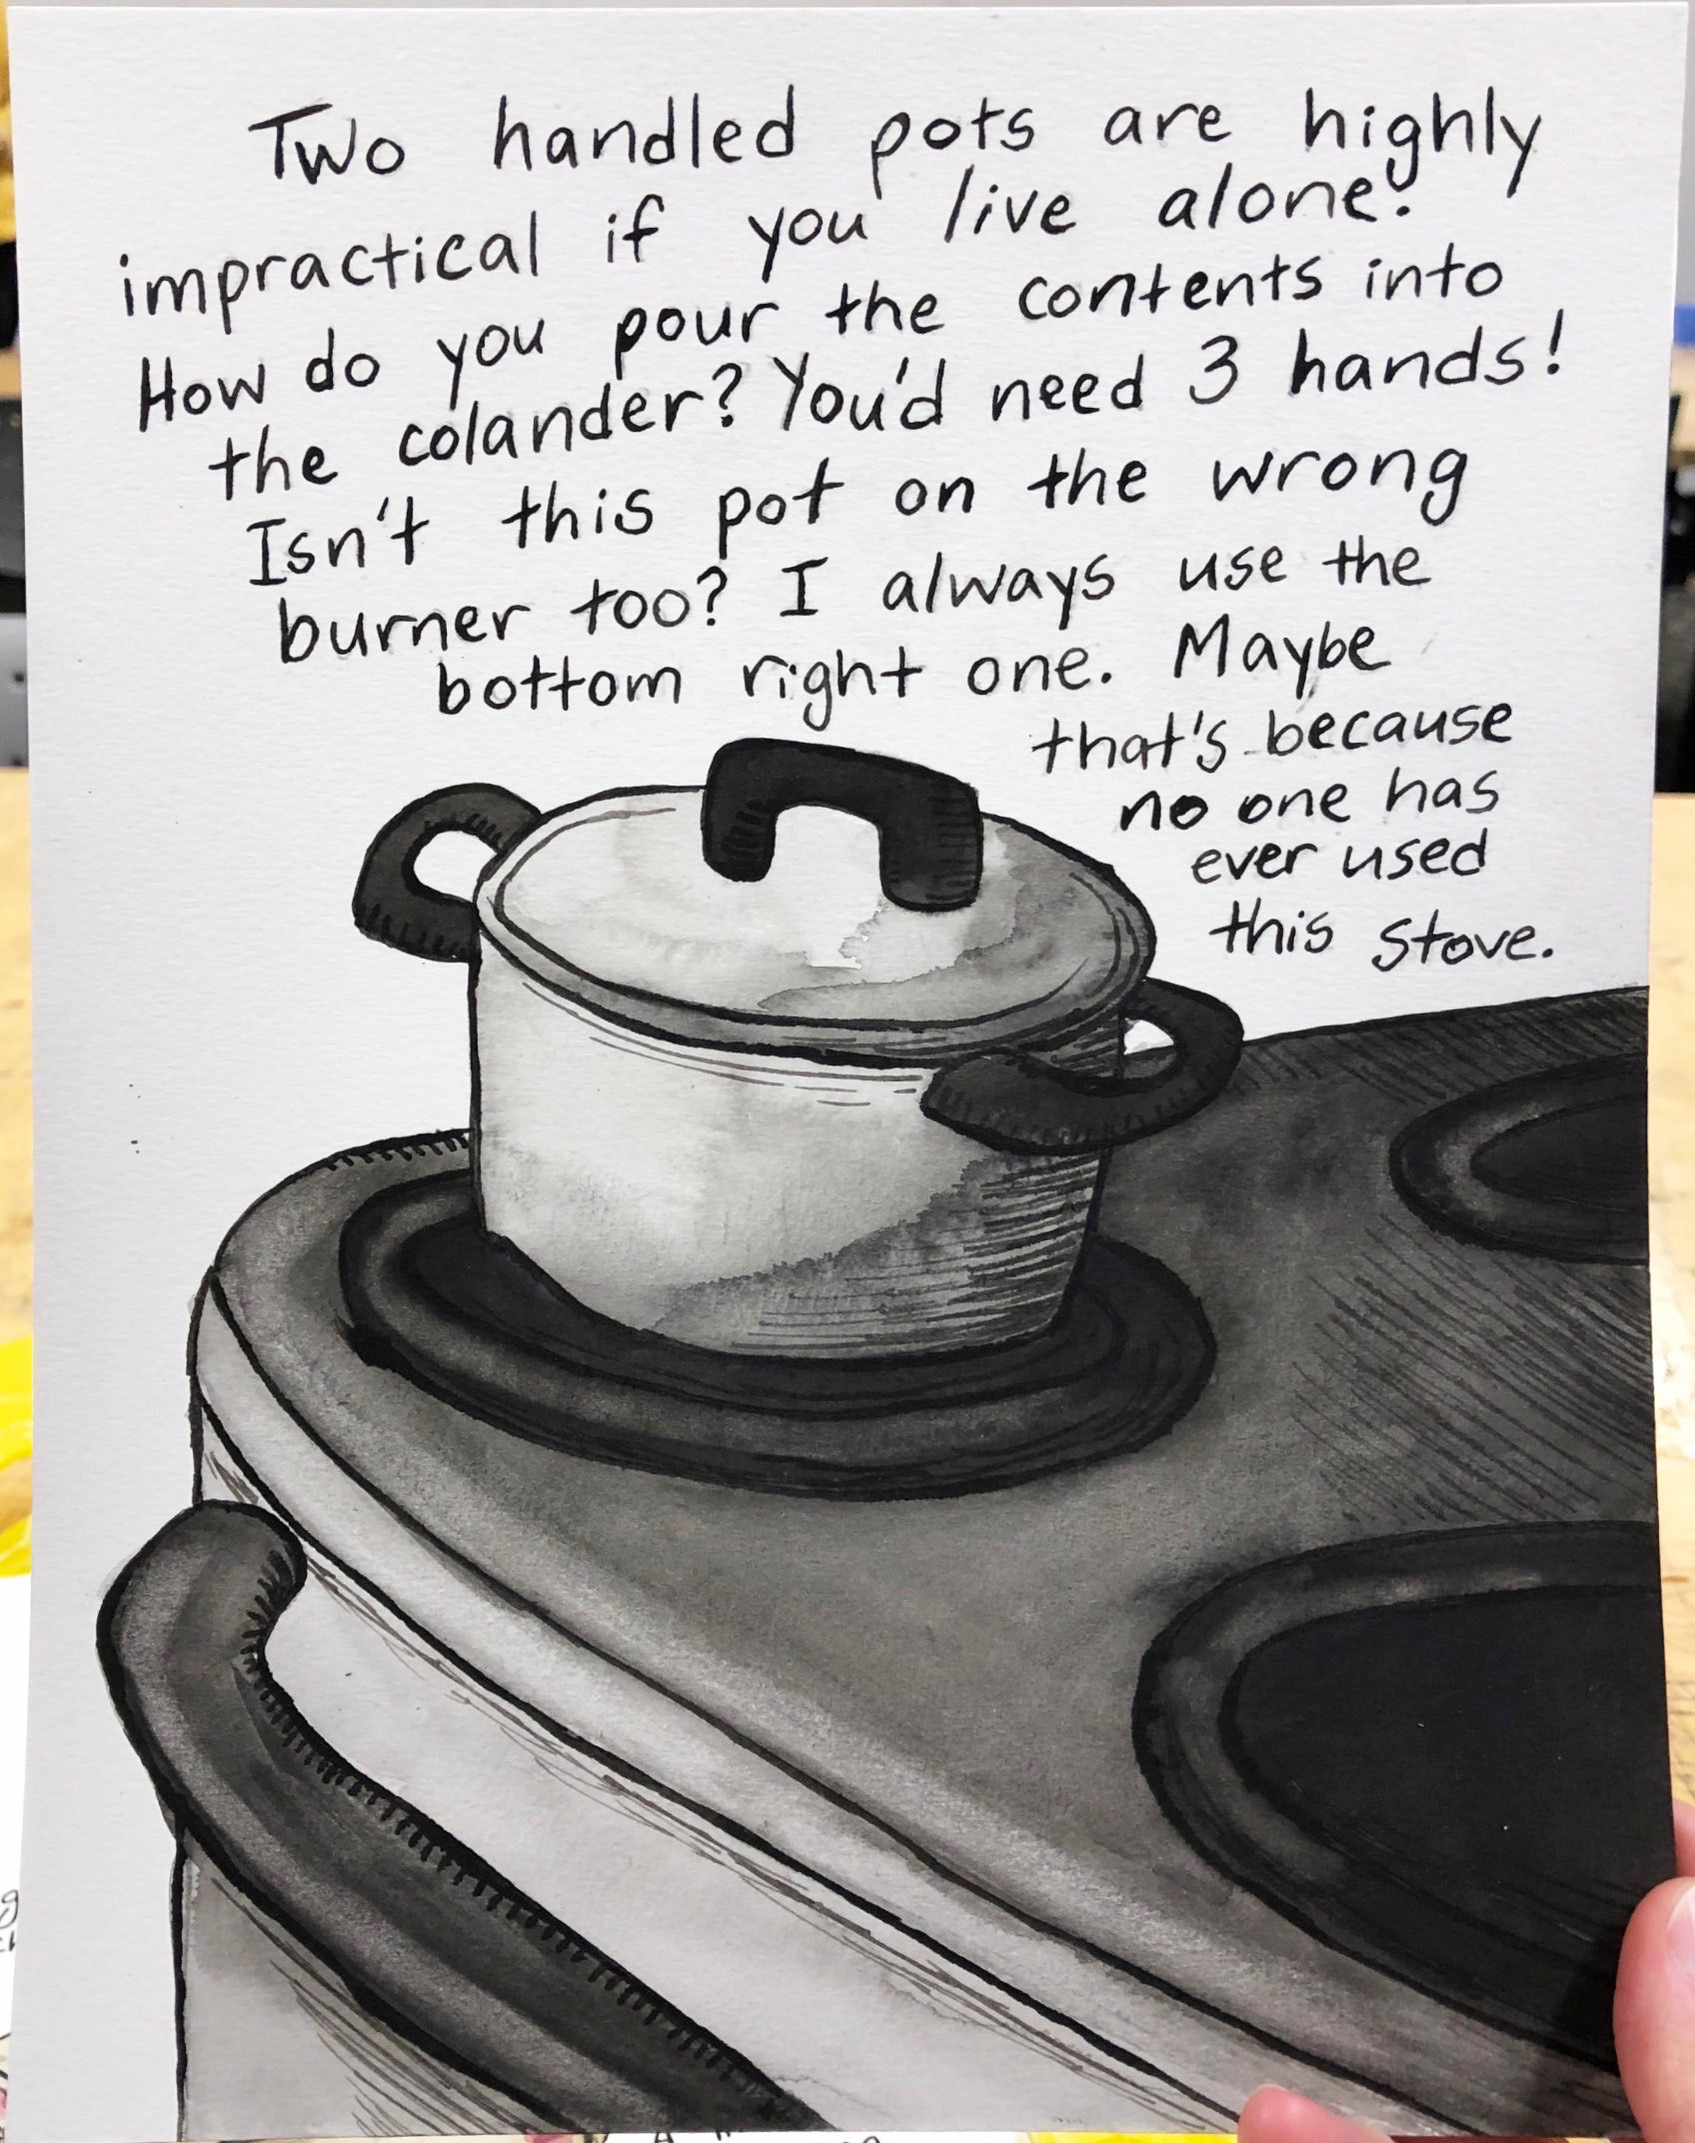 Two handled pots are highly
impractical if you live alone.
How do you pour the contents into
the colander? You'd need 3 hands!
Isn't this pot on the wrong
burner too? I always use the
bottom right one. Maybe
that's because
no one has
ever used
this stove.